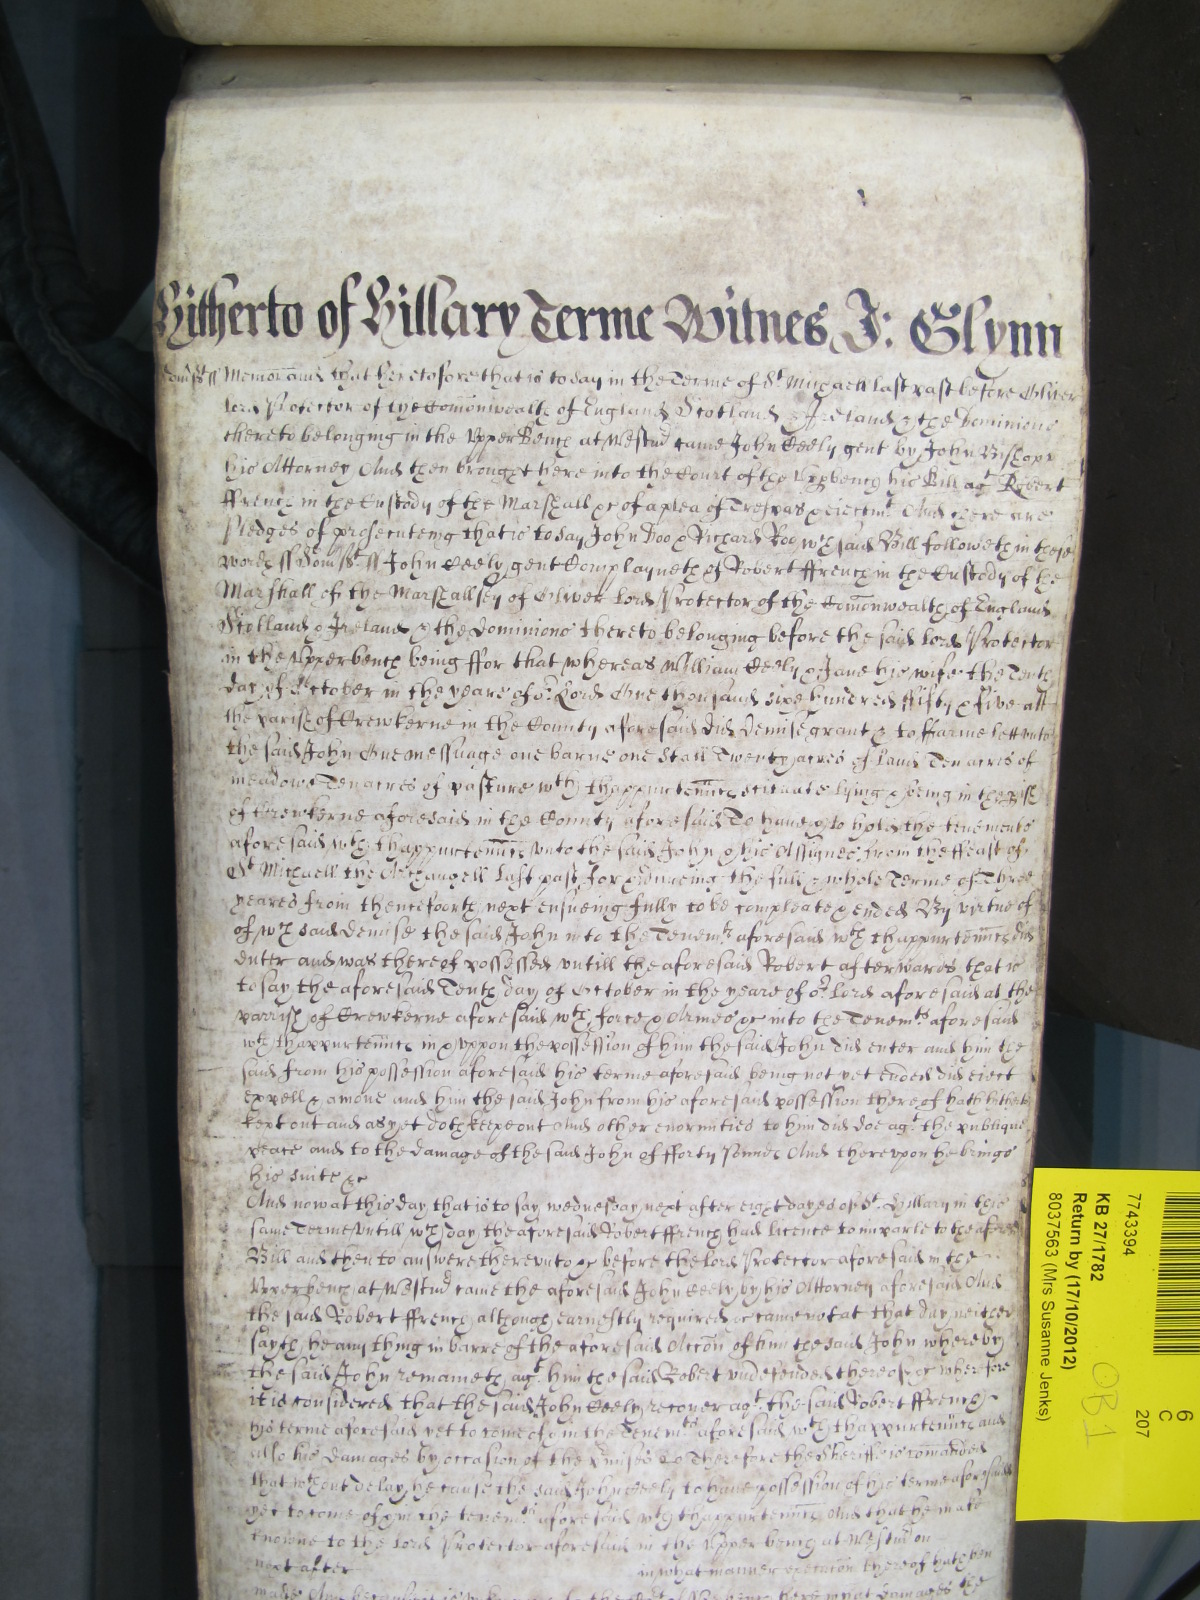 Hitherto of Hillary Terme Witnes J: Glynn
Somst ss Memorand that heretofore that is to say in the Terme of St Michaell last past before Oliver
Lord Protector of the Comonwealth of England Scotland & Ireland & the Dominions
thereto belonging in the Upper Bench at Westmr came John Seely gent by John Bishopp
his Attorney And then brought here into the Court of the Uppbench his Bill agt Robert
ffrench in the Custody of the Marshall &c of a plea of Trespas & eiectmt And there are
Pledges of prosecuteing that is to say John Doo & Richard Roo, wch said Bill followeth in these
words ss Somst ss John Seely gent Complayneth of Robert ffrench in the Custody of the
Marshall of the Marshallsey of Oliver Lord Protector of the Comonwealth of England
Scotland & Ireland & the Dominions thereto belonging before the said Lord Protector
in the Upperbench being ffor that whereas William Seely & Jane his wife the Tenth
day of October in the yeare of or Lord One thousand sixe hundred ffifty & five att
the parish of Crewkerne in the County aforesaid did Demise grant & to ffarme lett unto
the said John One messuage one barne one Stall Twenty acres of Land Ten acres of
meadow & Ten acres of pasture wth thappurtennces scituate lying & being in the pish
of Crewkerne aforesaid in the County aforesaid To have & to hold the tenements
aforesaid wth thappurtennces unto the said John & his Assignes from the ffeast of
St Michaell the Archangell last past for & dureing the full & whole Terme of Three
yeares from thenceforth next ensueing fully to be compleate & ended By virtue of
of wch said demise the said John into the Tenemts aforesaid wth thappurtennces did
enter and was thereof possessed untill the aforesaid Robert afterwards that is
to say the aforesaid Tenth day of October in the yeare of or Lord aforesaid at the
parrish of Crewkerne aforesaid wth force & Armes &c into the Tenemts aforesaid
wth thappurtennces in & uppon the possession of him the said John did enter and him the
said from his possession aforesaid his terme aforesaid being not yet ended did eiect
expell & amove and him the said John from his aforesaid possession thereof hath hitherto
kept out and as yet doth keepe out And other enormities to him did doe agt the publique
peace and to the damage of the said John of fforty pounds And thereupon he brings
his suite &c
And now at this day that is to say wednesday next after eight dayes of St Hillary in this
same Terme Untill wch day the aforesaid Robert ffrench had licence to imparle to the aforesd
Bill and then to answere thereunto &c before the Lord Protector aforesaid in the
Upperbench at Westmr came the aforesaid John Seely by his Attorney aforesaid And
the said Robert ffrench although earnestly required &c came not at that day neither
sayth he any thing in barre of the aforesaid Accon of him the said John whereby
the said John remaineth agt him the said Robert undefended thereof &c wherefore
it is considered that the said John Seely recover agt the said Robert ffrench
his terme aforesaid yet to come of & in the Tenemts aforesaid wth thappurtennces and
also his damages by occasion of the pmises &c Therefore the Sheriffe is comanded
that wthout delay he cause the said John Seely to have possession of his terme aforesaid
yet to come of & in the tenemts aforesaid wth thappurtennces And that he make
knowne to the Lord Protector aforesaid in the Upper bench at Westmr on
next after in what manner execucon thereof hath ben
made And because it is
7743394
KB 27/1782
Return by (17/10/2012)
8037563 (Mrs Susanne Jenks)
6
C
207
OB 1